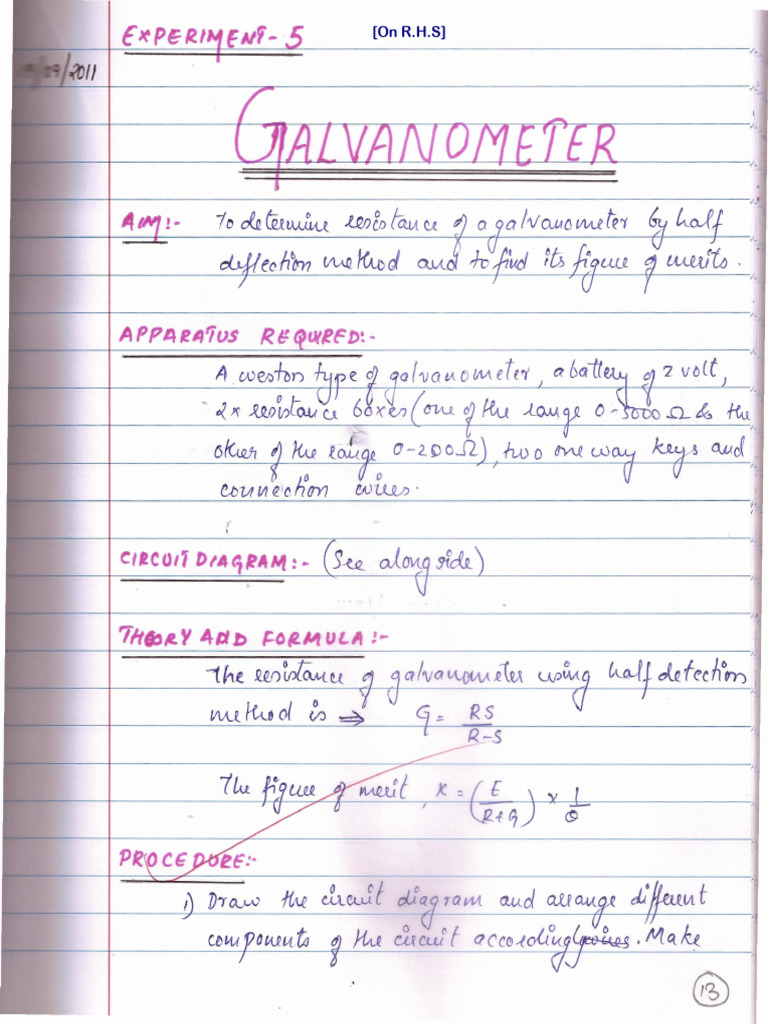 EXPERIMENT-5
[On R.H.S]
/09/2011
GALVANOMETER
AIM:- To determine resistance of a galvanometer by half
deflection method and to find its figure of merits.
APPARATUS REQUIRED:-
A weston type of galvanometer, a battery of 2 volt,
2x resistance boxes (one of the range 0-5000 Ω & the
other of the range 0-200Ω), two one way keys and
connection wires.
CIRCUIT DIAGRAM:- (See alongside)
THEORY AND FORMULA:-
The resistance of galvanometer using half detection
method is ⇒ G = RS/R-S
The figure of merit, K = (E/R+G) x 1/θ
PROCEDURE:-
1) Draw the circuit diagram and arrange different
components of the circuit accordingly. Make
13